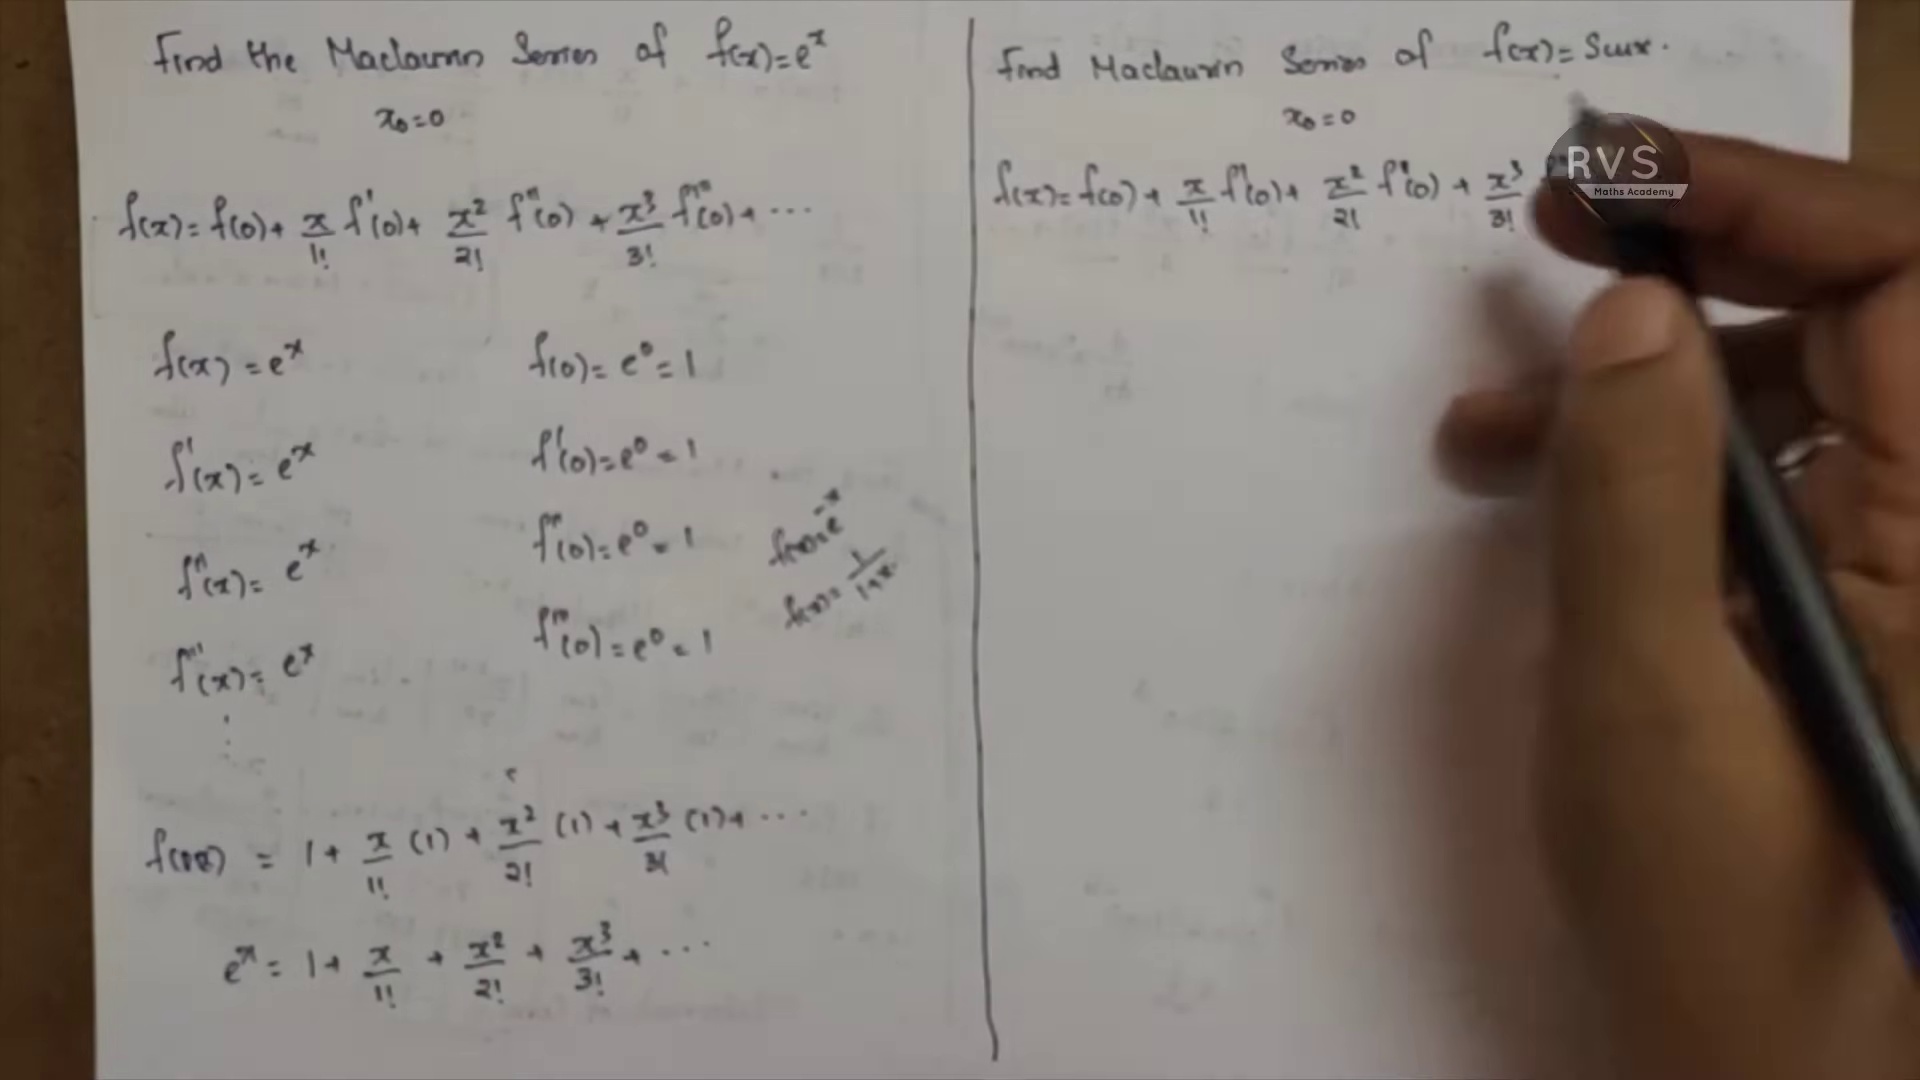 Find the Maclaurin Series of f(x)=eˣ
x₀=0
f(x)=f(0)+ x/1! f'(0)+ x²/2! f''(0) + x³/3! f'''(0)+ ...
f(x) = eˣ f(0)= e⁰ = 1
f'(x)= eˣ f'(0)=e⁰ = 1
f''(x)= eˣ f''(0)=e⁰ = 1
f'''(x)= eˣ f'''(0)=e⁰ = 1
f(x)=e⁻ˣ
f(x)= 1/1+x
= 1+ x/1! (1) + x²/2! (1) + x³/3! (1)+ ...
eˣ = 1+ x/1! + x²/2! + x³/3! + ...
Find Maclaurin Series of f(x)= Sinx.
x₀=0
f(x)= f(0) + x/1! f'(0)+ x²/2! f''(0) + x³/3!
RVS
Maths Academy